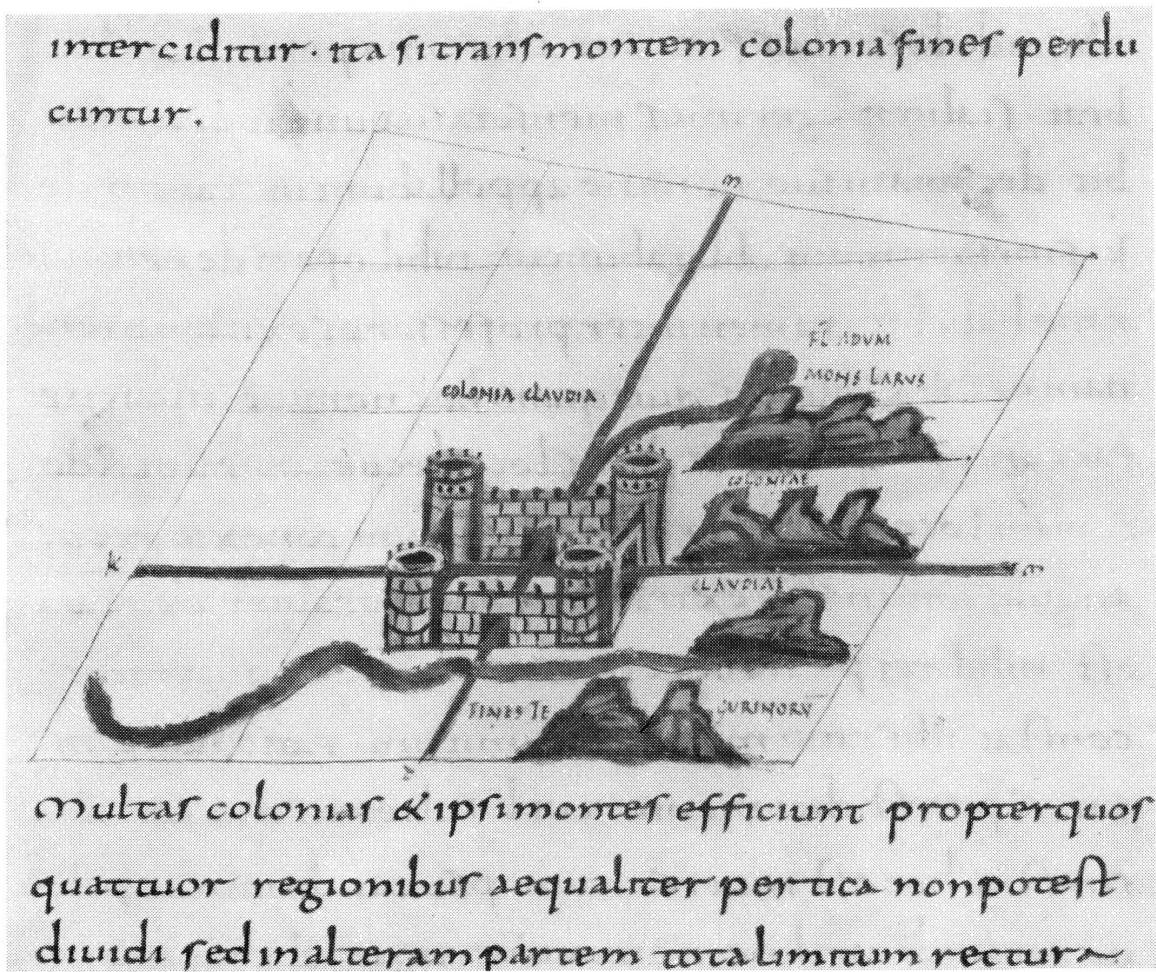 interciditur. ita si trans montem colonia fines perdu
cuntur.
m
FL ADUM
MONS LARUS
COLONIA CLAUDIA
COLONIAE
K
m
CLAUDIAE
FINES TE
GURINORV
multas colonias & ipsi montes efficiunt propter quos
quattuor regionibus aequaliter pertica non potest
diuidi sed in alteram partem tota limitum rectura